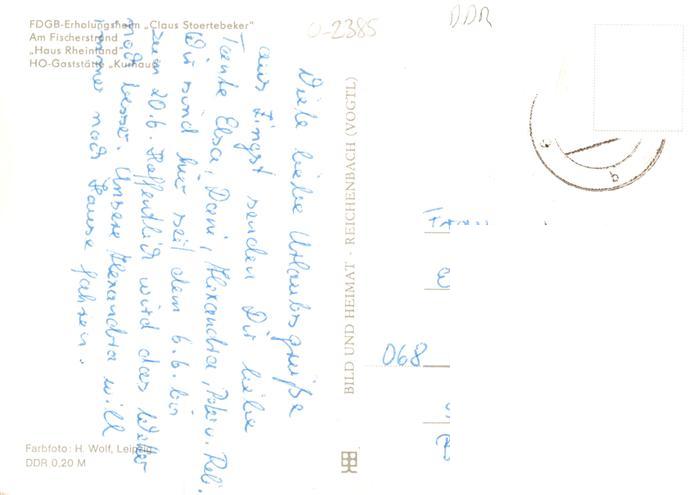 FDGB-Erholungsheim „Claus Stoertebeker"
Am Fischerstrand
„Haus Rheinland"
HO-Gaststätte „Kurhaus"
0-2385
DDR
Viele liebe Urlaubsgrüße
aus Zingst senden Dir liebe
Tante Elsa, Dani, Alexandra, Peter u. Reli.
Wir sind hier seit dem 6.6. bis
zum 20.6. Hoffentlich wird das Wetter
noch besser. Unsere Alexandra will
immer nach Hause fahren.
BILD UND HEIMAT · REICHENBACH (VOGTL)
068
Farbfoto: H. Wolf, Leipzig
DDR 0,20 M
b